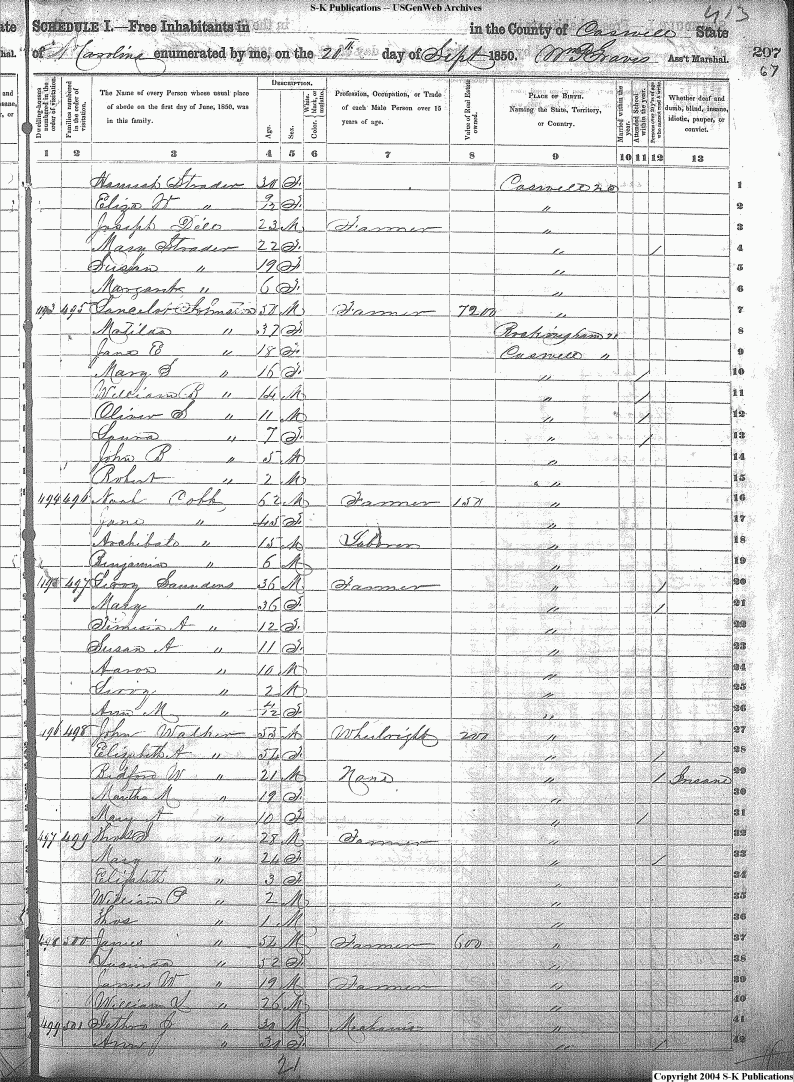 S-K Publications -- USGenWeb Archives
413
SCHEDULE I.—Free Inhabitants in in the County of Caswell State
of N Carolina enumerated by me, on the 20th day of Sept 1850. Wm Graves Ass't Marshal.
207
67
Dwelling-houses numbered in the order of visitation.
Families numbered in the order of visitation.
The Name of every Person whose usual place of abode on the first day of June, 1850, was in this family.
DESCRIPTION.
Age.
Sex.
Color. White, black, or mulatto.
Profession, Occupation, or Trade of each Male Person over 15 years of age.
Value of Real Estate owned.
PLACE OF BIRTH. Naming the State, Territory, or Country.
Married within the year.
Attended School within the year.
Persons over 20 y'rs of age who cannot read & write.
Whether deaf and dumb, blind, insane, idiotic, pauper, or convict.
1 2 3 4 5 6 7 8 9 10 11 12 13
Hannah Strader 30 F Caswell 1
Eliza W " 9/12 F " 2
Joseph 23 M Farmer " 3
Mary Strader 22 F " / 4
Susan " 19 F " 5
Margarett " 6 F " 6
495 Johnston 50 M Farmer 7200 " 7
Matilda " 37 F Rockingham " 8
Jane E " 18 F Caswell " 9
Mary S " 16 F " / 10
William B " 14 M " / 11
Oliver S " 11 M " / 12
Laura " 7 F " / 13
John B " 5 M " 14
Robert " 2 M " 15
494 496 Noah Cobb 62 M Farmer 150 " 16
Jane " 45 F " 17
Archibald " 15 M Laborer " 18
Benjamin " 6 M " 19
497 Saunders 36 M Farmer " / 20
Mary " 36 F " / 21
A " 12 F " 22
Susan A " 11 F " 23
Aaron " 10 M " 24
" 2 M " 25
Ann M " F " 26
496 498 John Walker 55 M Wheelwright 200 " 27
Elizabeth A " F " / 28
Bedford W " 21 M None " / Insane 29
Martha M " 19 F " 30
Mary A " 10 F " / 31
497 499 Thos " 28 M Farmer " 32
Mary " 24 F " / 33
Elizabeth " 3 F " 34
William P " 2 M " 35
Thos " 1 M " 36
498 500 James " M Farmer 600 " 37
Lucinda " 52 F " 38
James W " 19 M Farmer " 39
William L " 26 M " 40
499 501 Jethro J " 30 M Mechanic " 41
Ann " 30 F " / 42
21
Copyright 2004 S-K Publications